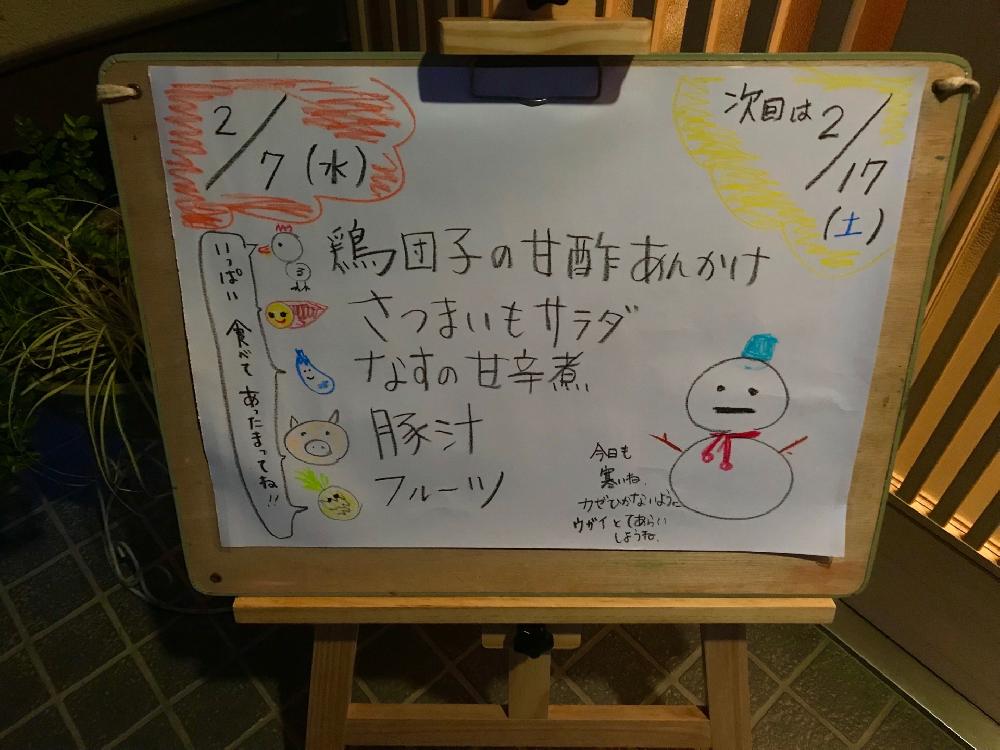 2/7(水)
次回は2/17
(土)
鶏団子の甘酢あんかけ
さつまいもサラダ
なすの甘辛煮
豚汁
フルーツ
いっぱい食べてあったまってね!!
今日も
寒いね、
カゼひかないように
ウガイとてあらい
しようね。